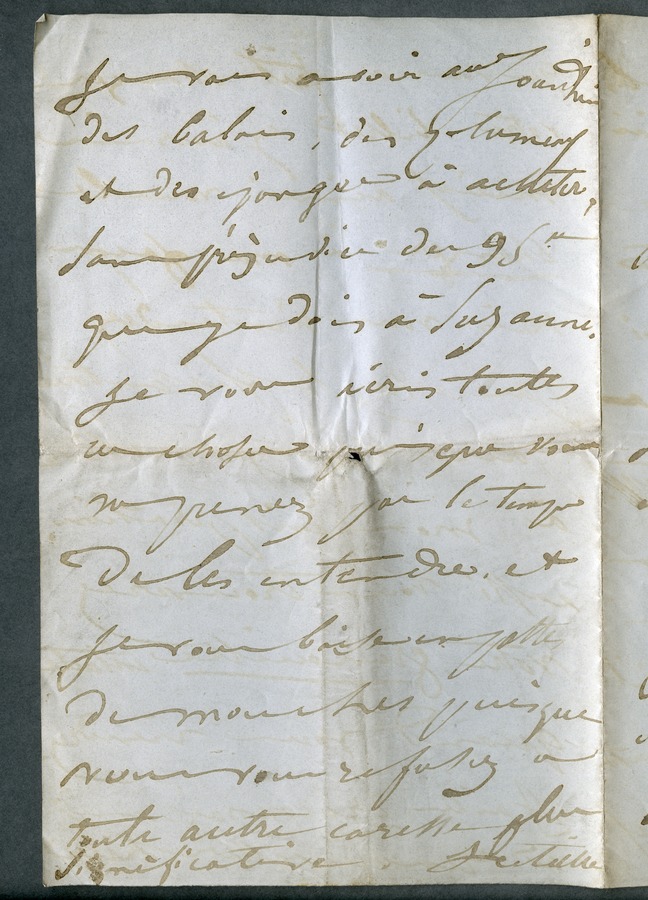 Je vais avoir aux Jourdain
des balais, des plumeaux
et des éponges à acheter,
sans préjudice des 95
que je dois à Suzanne.
Je vous écris toutes
ces choses puisque vous
ne prenez pas le temps
de les entendre, et
Je vous baise en pattes
de mouches puisque
vous vous refusez à
toute autre caresse plus
significative.